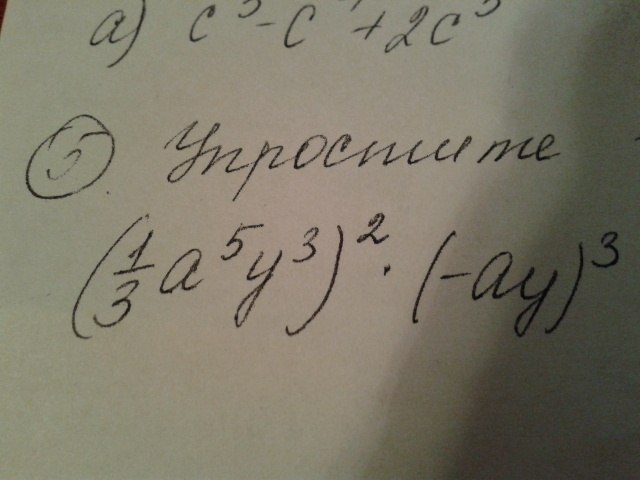 а) c³ - c⁴ + 2c³
⑤ Упростите
(1/3 a⁵y³)² · (-ay)³